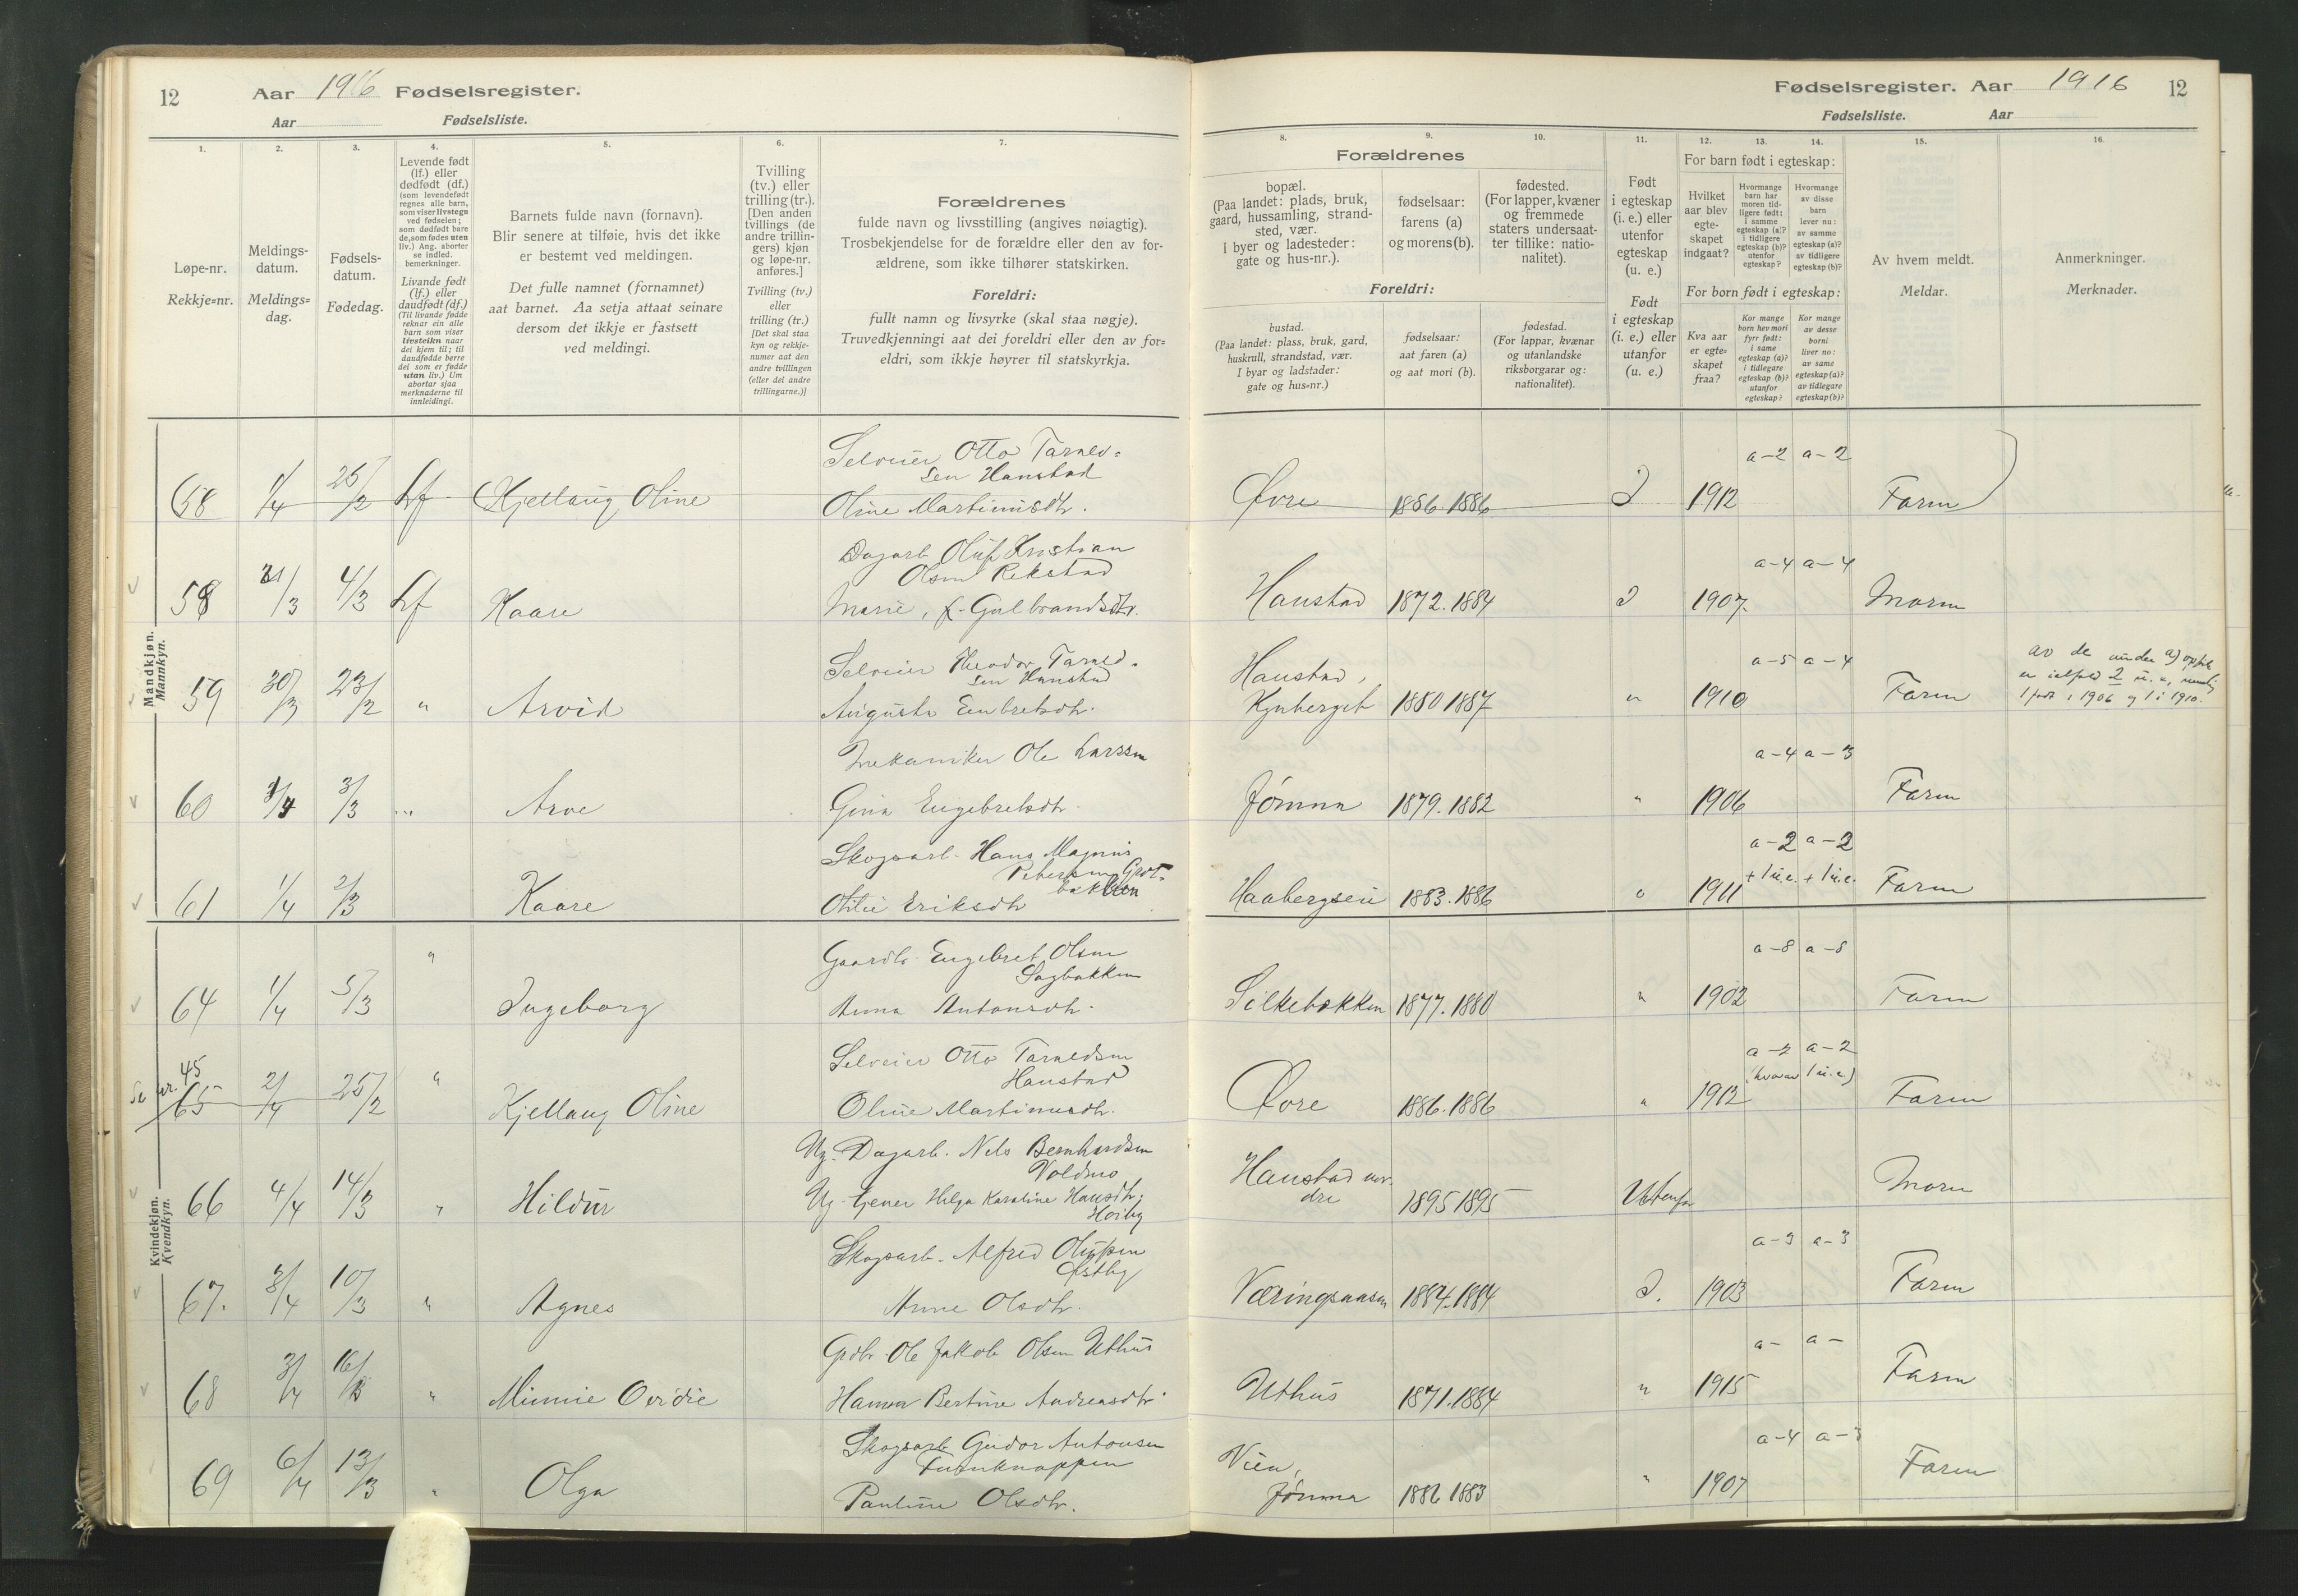 12
Aar 1916 Fødselsregister.
Aar Fødselsliste.
1. 2. 3. 4. 5. 6. 7.
Løpe-nr.
Rekkje=nr.
Meldings-
datum.
Meldings=
dag.
Fødsels-
datum.
Fødedag.
Levende født
(lf.) eller
dødfødt (df.)
(som levendefødt
regnes alle barn,
som viser livstegn
ved fødselen;
som dødfødt bare
de, som fødes uten
liv.) Ang. aborter
se indled.
bemerkninger.
Livande født
(lf.) eller
daudfødt (df.)
(Til livande fødde
reknar ein alle
barn som viser
livsteikn naar
dei kjem til; til
daudfødde berre
dei som er fødde
utan liv.) Um
abortar sjaa
merknaderne til
innleidingi.
Barnets fulde navn (fornavn).
Blir senere at tilføie, hvis det ikke
er bestemt ved meldingen.
Det fulle namnet (fornamnet)
aat barnet. Aa setja attaat seinare
dersom det ikkje er fastsett
ved meldingi.
Tvilling
(tv.) eller
trilling (tr.).
[Den anden
tvillings (de
andre trillin-
gers) kjøn
og løpe-nr.
anføres.]
Tvilling (tv.)
eller
trilling (tr.)
[Det skal staa
kyn og rekkje-
numer aat den
andre tvillingen
(eller dei andre
trillingarne.)]
Forældrenes
fulde navn og livsstilling (angives nøiagtig).
Trosbekjendelse for de forældre eller den av for-
ældrene, som ikke tilhører statskirken.
Foreldri:
fullt namn og livsyrke (skal staa nøgje).
Truvedkjenningi aat dei foreldri eller den av for=
eldri, som ikkje høyrer til statskyrkja.
Mandkjøn.
Mannkyn.
58 1/4 25/2 Lf Kjellaug Oline
Selveier Otto Tarald-
sen Hanstad
Oline Martinusdtr.
58 31/3 4/3 Lf Kaare
Dagarb. Oluf Kristian
Olsen Rekstad
Marie, f. Gulbrandsdtr.
59 30/3 23/2 " Arvid
Selveier Theodor Tarald-
sen Hanstad
Augusta Embretsdtr.
60 3/4 3/3 " Arve
Mekaniker Ole Larssen
Gina Engebretsdtr.
61 1/4 2/3 Kaare
Skogsarb. Hans Magnus
Petersen
Otilie Eriksdtr
Kvindekjøn.
Kvendkyn.
64 1/4 5/3 " Ingeborg
Gaardbr. Engebret Olsen
Sagbakken
Anna Antonsdtr.
Se nr. 45
65 2/4 25/2 " Kjellaug Oline
Selveier Otto Taraldsen
Hanstad
Oline Martinusdtr.
66 4/4 14/3 " Hildur
Ug. Dagarb. Nils Bernhardsen
Voldmo
Ug. tjener Helga Karoline Hansdtr.
Hoiby
67. 3/4 10/3 " Agnes
Skogsarb. Alfred Olufsen
Østby
Anne Olsdtr.
68 3/4 16/3 " Minnie Ovidie
Grdbr. Ole Jakob Olsen Uthus
Hanna Bertine Andreasdtr.
69 6/4 13/3 " Olga
Skogsarb. Gudor Antonsen
Furuknappen
Pauline Olsdtr.
Fødselsregister. Aar 1916 12
Fødselsliste. Aar
8. 9. 10. 11. 12. 13. 14. 15. 16.
Forældrenes
bopæl.
(Paa landet: plads, bruk,
gaard, hussamling, strand-
sted, vær.
I byer og ladesteder:
gate og hus-nr.).
fødselsaar:
farens (a)
og morens (b).
fødested.
(For lapper, kvæner
og fremmede
staters undersaat-
ter tillike: natio-
nalitet).
Foreldri:
bustad.
(Paa landet: plass, bruk, gard,
huskrull, strandstad, vær.
I byar og ladstader:
gate og hus=nr.)
fødselsaar:
aat faren (a)
og aat mori (b).
fødestad.
(For lappar, kvænar
og utanlandske
riksborgarar og:
nationalitet).
Født
i egteskap
(i. e.) eller
utenfor
egteskap
(u. e.)
Født
i egteskap
(i. e.) eller
utanfor
egteskap
(u. e.)
For barn født i egteskap:
Hvilket
aar blev
egte-
skapet
indgaat?
Hvormange
barn har
moren tid-
ligere født:
i samme
egteskap (a)?
i tidligere
egteskap (b)?
utenfor
egteskap?
Hvormange
av disse
barn
lever nu:
av samme
egteskap (a)?
av tidligere
egteskap (b)?
For born født i egteskap:
Kva aar
er egte=
skapet
fraa?
Kor mange
born hev mori
fyrr født:
i same
egteskap (a)?
i tidlegare
egteskap (b)?
utanfor
egteskap?
Kor mange
av desse
borni
liver no:
av same
egteskap (a)?
av tidlegare
egteskap (b)?
Av hvem meldt.
Meldar.
Anmerkninger.
Merknader.
Øvre 1886 1886 I 1912 a-2 a-2 Faren
Hanstad 1872. 1884 I 1907. a-4 a-4 Moren
Hanstad,
Kynberget 1880 1887 " 1910 a-5 a-4 Faren
av de under a) opførte
er ialfald 2 u. e., nemlig
1 født i 1906 og 1 i 1910.
Jømna 1879. 1882 " 1906 a-4 a-3 Faren
Haabergseie 1883. 1886 " 1911 a-2 a-2
+ 1 u.e. + 1 u.e. Faren
Silkebækken 1877. 1880 " 1902 a-8 a-8 Faren
Øvre 1886. 1886 " 1912 a-2 a-2
(hvorav 1 u.e) Faren
Hanstad nor-
dre 1895 1895 Utenfor Moren
Væringsaasen 1884. 1884 I. 1903 a-3 a-3 Faren
Uthus 1871. 1884 " 1915 a- a- Faren
Vien,
Jømna 1882 1883 " 1907 a-4 a-3 Faren